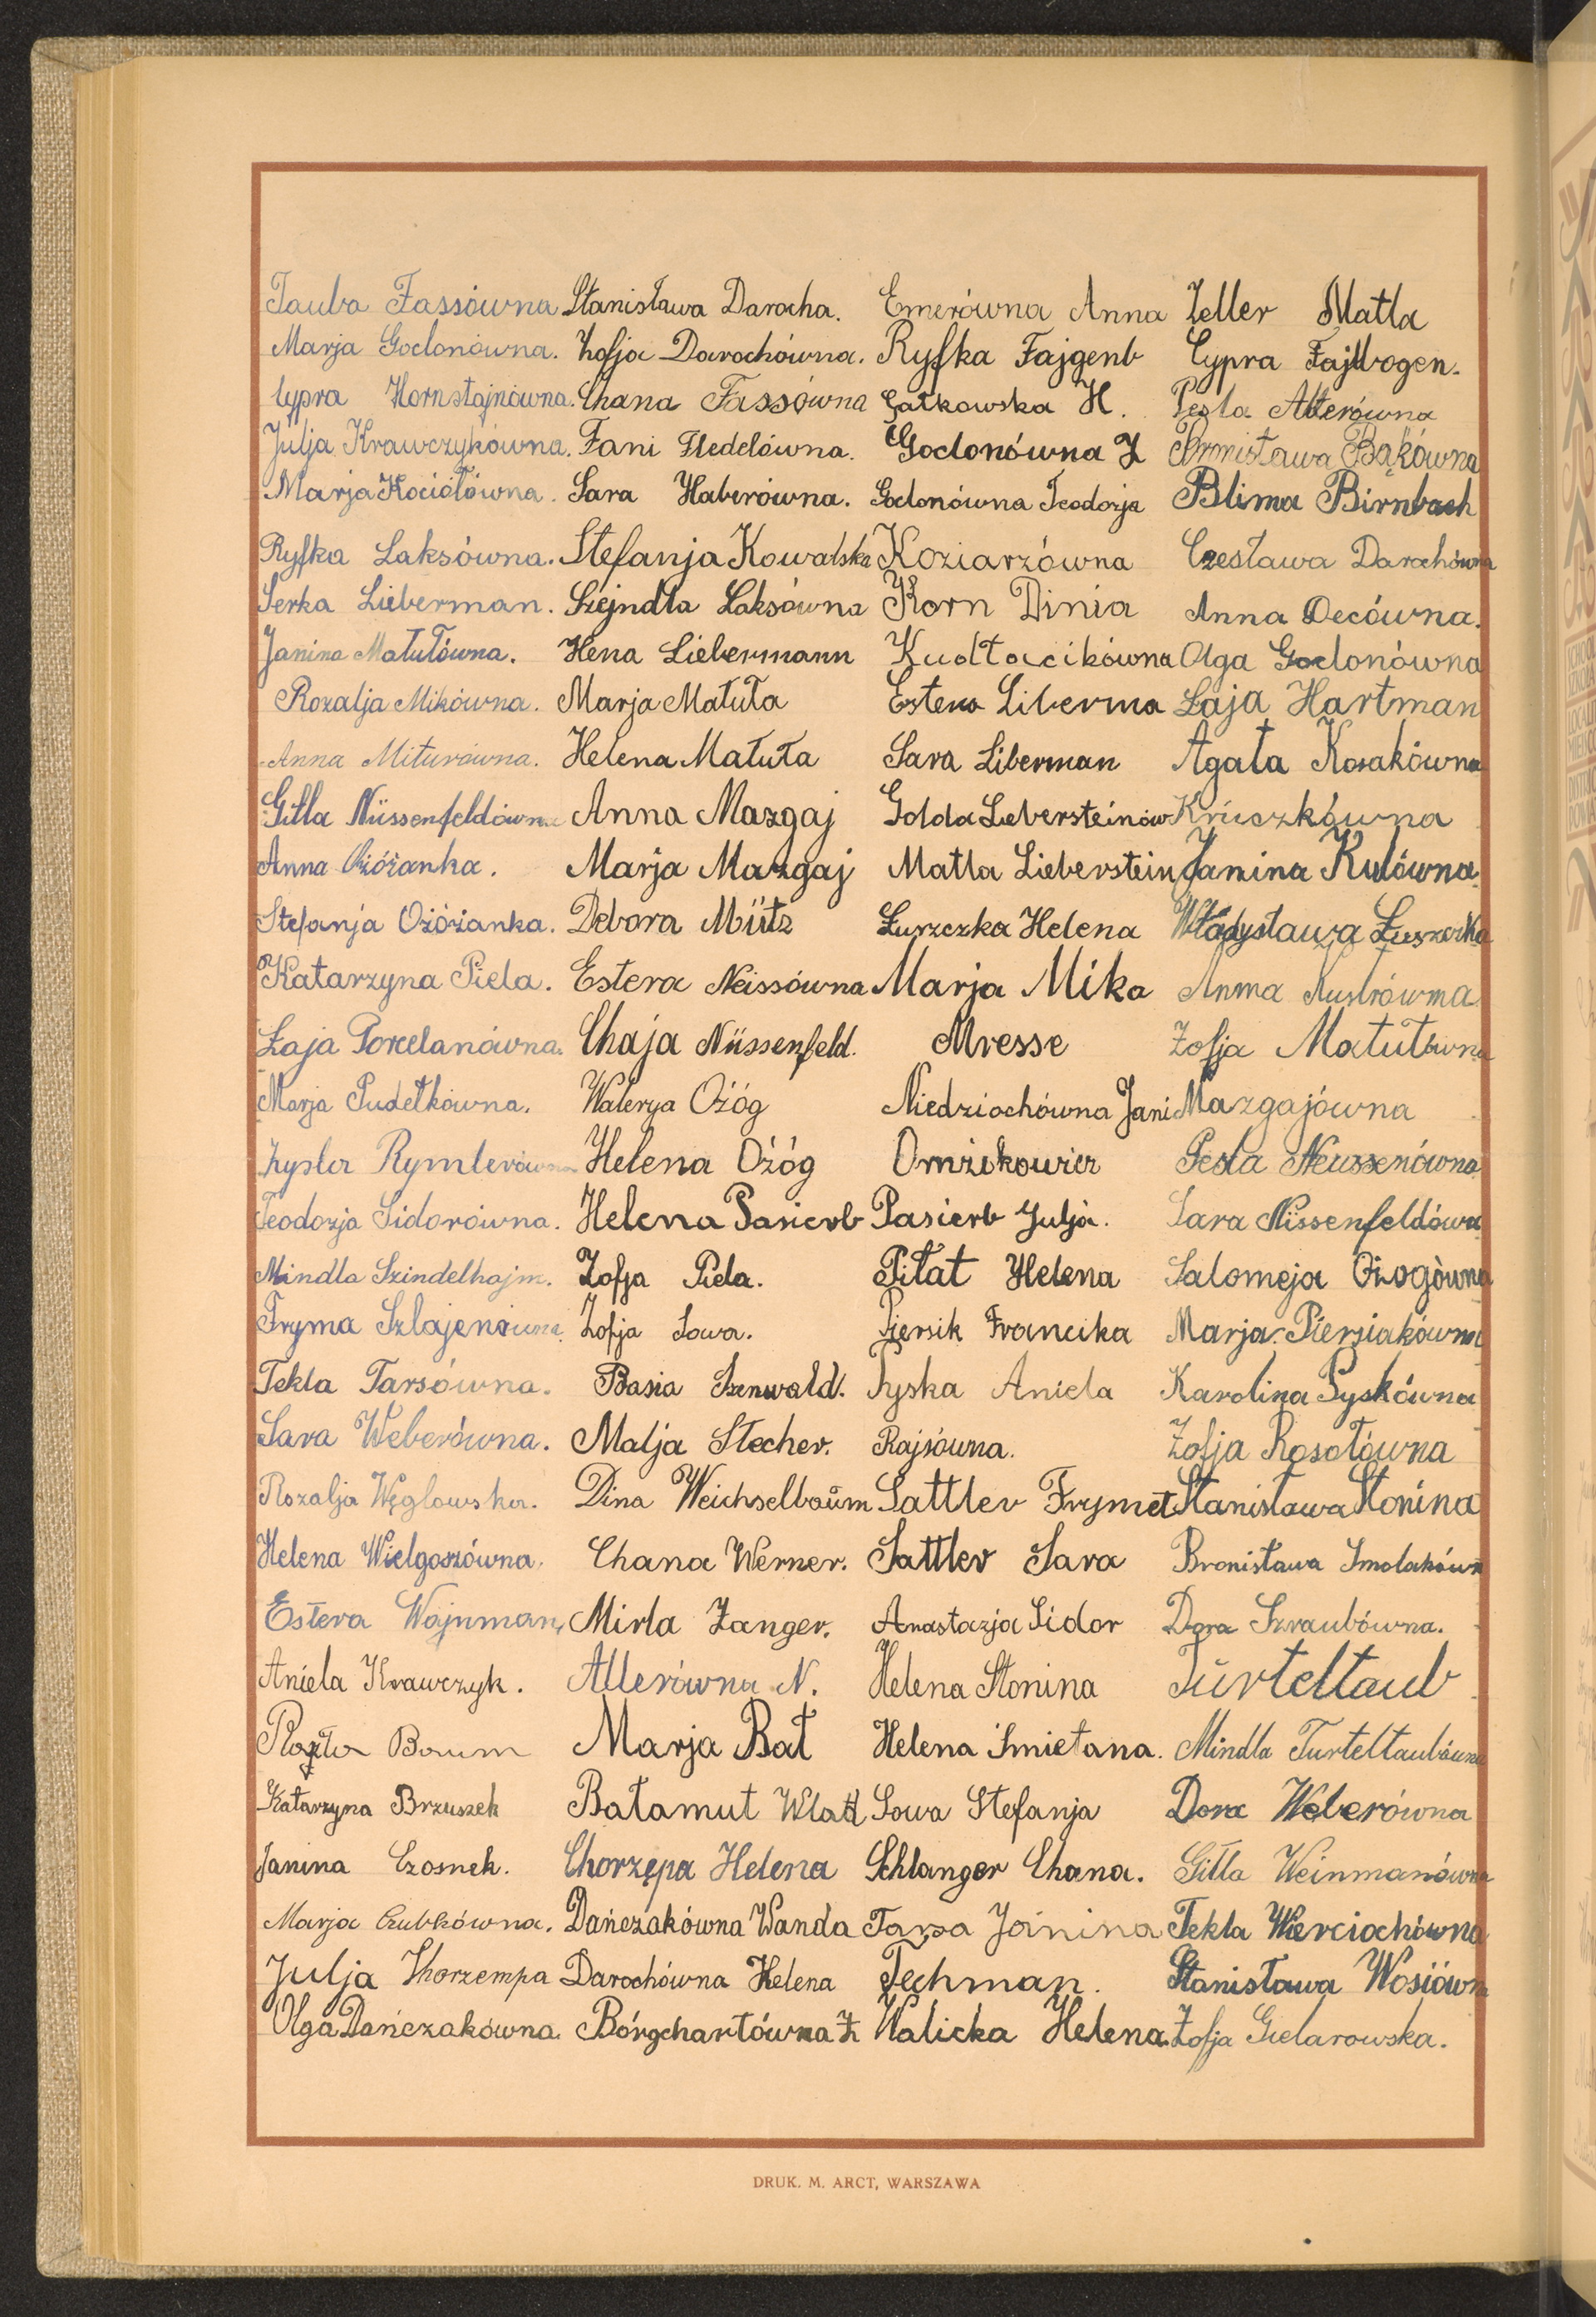 Tauba Fassówna Stanisława Darocha. Emerówna Anna Zeller Matla
Marja Godonówna. Zofja Darochówna. Ryfka Fajgenb Cypra Fajlbogen.
Cypra Hornstajnówna. Chana Fassówna Gałkowska H. Pesla Alterówna
Julja Krawczykówna. Fani Fledelówna. Godonówna Z Bronisława Bąkówna
Marja Kociołówna. Sara Haberówna. Godonówna Teodozja Blima Birnbach
Ryfka Laksówna. Stefanja Kowalska Koziarzówna Czesława Darochówna
Serka Lieberman. Szejndla Laksówna Korn Dinia Anna Decówna.
Janina Matułówna. Hena Liebermann Kudłacikówna Olga Godonówna
Rozalja Mikówna. Marja Matuła Estera Liberma Łaja Hartman
Anna Miturówna. Helena Matuła Sara Liberman Agata Kosakówna
Gitla Nüssenfeldówna Anna Mazgaj Golda Liebersteinów Kruczkówna
Anna Ożóżanka. Marja Mazgaj Matla Lieberstein Janina Kulówna.
Stefanja Ożóżanka. Debora Mütz Łuszczka Helena Władysława Łuszczka
Katarzyna Piela. Estera Neissówna Marja Mika Anna Kustrówna
Łaja Porcelanówna. Chaja Nüssenfeld. Mresse Zofja Matułówna
Marja Pudełkówna. Walerya Ożóg Niedziochówna Jani Mazgajówna
Zysla Rymlerówna Helena Ożóg Pesla Neussenówna
Teodozja Sidorówna. Helena Pasierb Pasierb Julja. Sara Nissenfeldówna
Mindla Szindelhajm. Zofja Piela. Piłat Helena Salomeja Ożogówna
Fryma Szlajenówna. Zofja Sowa. Piersik Francika Marja Piersiakówna
Tekla Tarsówna. Basia Szenwald. Pyska Aniela Karolina Pyskówna
Sara Weberówna. Malja Stecher. Rajsówna. Zofja Rosołówna
Rozalja Węglowska. Dina Weichselbaum Sattler Frymet Stanisława Słonina
Helena Wielgoszówna. Chana Werner. Sattler Sara Bronisława Smolakówn
Estera Wajnman, Mirla Zanger. Anastazja Sidor Dora Szraubówna.
Aniela Krawczyk. Allerówna N. Helena Słonina Türteltaub
Baum Marja Bał Helena Śmietana. Mindla Turteltaubówna
Katarzyna Brzuszek Bałamut Wład Sowa Stefanja Dora Weberówna
Janina Czosnek. Chorzępa Helena Schlanger Chana. Gitla Weinmanówna
Marja Czubkówna. Dańczakówna Wanda Tarsa Janina Tekla Wierciochówna
Julja Chorzempa Darochówna Helena Techman. Stanisława Wosiówn
Olga Dańczakówna. Bórgchartówna Z Walicka Helena. Zofja Gielarowska.
DRUK. M. ARCT, WARSZAWA